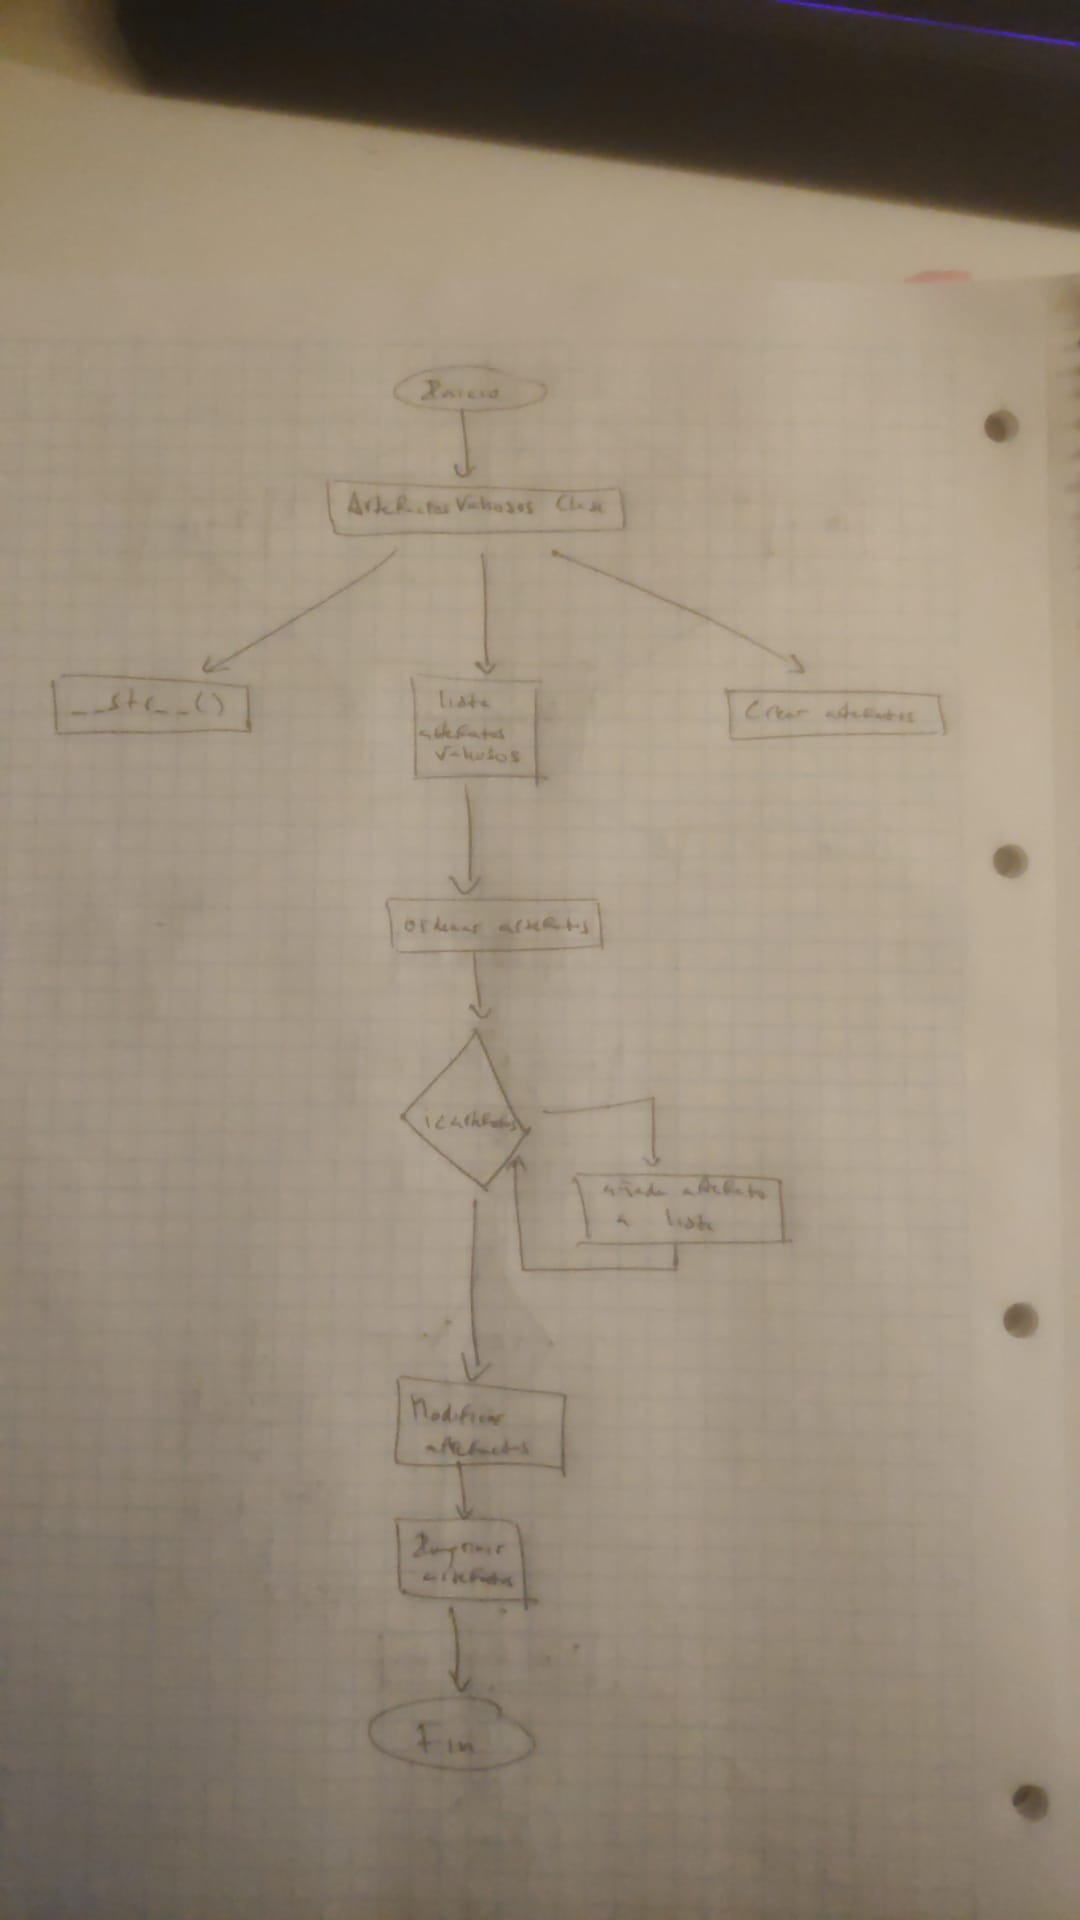 Inicio
Artefactos Valiosos Clase
__str__()
lista
artefatos
valiosos
Crear artefatos
ordenar artefatos
i < artefatos
añade artefato
a lista
Modificar
artefactos
Imprimir
artefatos
Fin